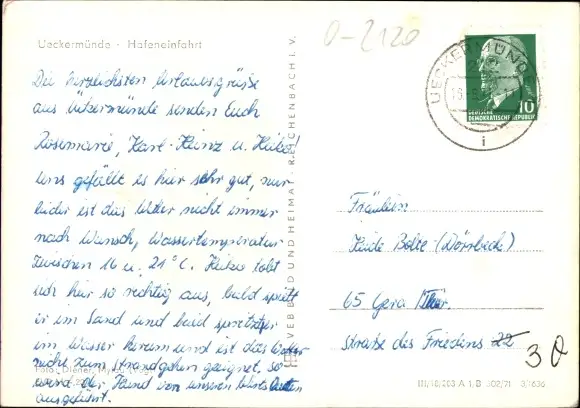 Ueckermünde · Hafeneinfahrt
0-2120
Die herzlichsten Urlaubsgrüße
aus Ückermünde senden Euch
Rosemarie, Karl-Heinz u. Heiko!
Uns gefällt es hier sehr gut, nur
leider ist das Wetter nicht immer
nach Wunsch, Wassertemperatur
zwischen 16 u. 21°C. Heiko tobt
sich hier so richtig aus, bald spielt
er im Sand und bald spritzt er
im Wasser herum und ist das Wetter
nicht zum Strandgehen geeignet, so
wird der Hund von unseren Wirtsleuten
ausgeführt.
Foto: Diener,
VEB BILD UND HEIMAT · REICHENBACH I. V.
UECKERMÜNDE
i
10
DEUTSCHE
DEMOKRATISCHE REPUBLIK
Fräulein
Heide Bolte (Dörrbeck)
65 Gera
Straße des Friedens 22
III/18/203 A 1, B 502/71 3/1636